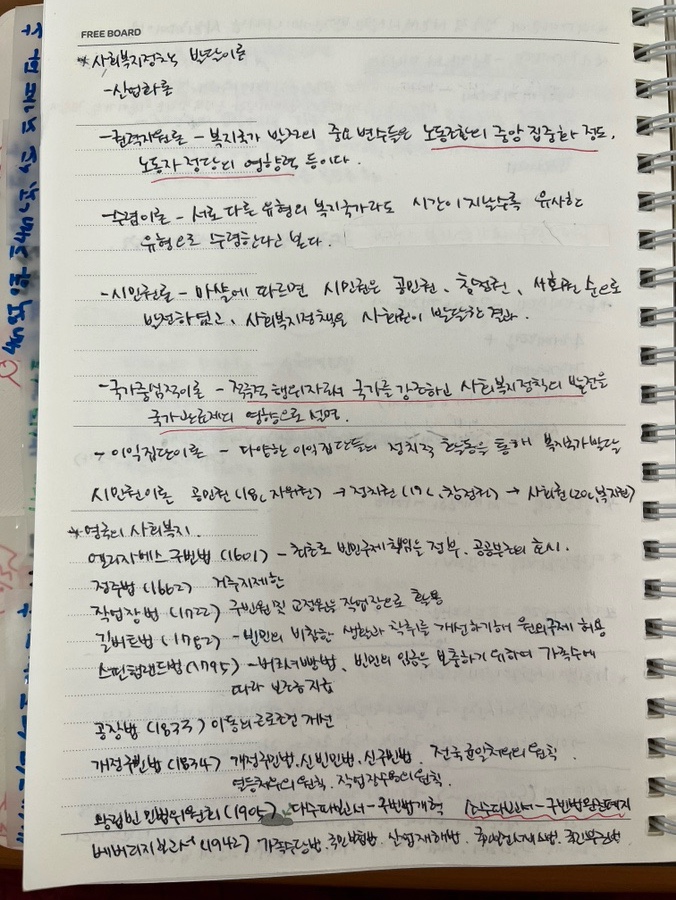 FREE BOARD
* 사회복지정책 발달이론
- 산업화론
- 권력자원론 - 복지국가 발전의 중요 변수들은 노동조합의 중앙 집중화 정도,
노동자 정당의 영향력 등이다.
- 수렴이론 - 서로 다른 유형의 복지국가라도 시간이 지날수록 유사한
유형으로 수렴한다고 본다.
- 시민권론 - 마샬에 따르면 시민권은 공민권, 참정권, 사회권 순으로
발전하였고, 사회복지정책을 사회권이 발달한 결과.
- 국가중심적이론 - 적극적 행위자로서 국가를 강조하고 사회복지정책의 발전을
국가관료제의 영향으로 설명.
- 이익집단이론 - 다양한 이익집단들의 정치적 활동을 통해 복지국가발달
시민권이론 공민권(18C, 자위권) → 정치권(19C, 참정권) → 사회권(20C, 복지권)
* 영국의 사회복지.
엘리자베스 구빈법 (1601) - 최초로 빈민구제 책임을 정부. 공공부조의 효시.
정주법 (1662) 거주지제한
작업장법 (1722) 구빈원 및 교정원을 작업장으로 활용
길버트법 (1782) - 빈민의 비참한 생활과 착취를 개선하기 위해 원외구제 허용
스핀햄랜드법 (1795) - 버크셔빵법, 빈민의 임금을 보충하기 위하여 가족수에
따라 보조금지급
공장법 (1833) 아동의 근로조건 개선
개정구빈법 (1834) 개정구민법, 신빈민법, 신구빈법. 전국 균일처우의 원칙.
열등처우의 원칙. 작업장수용의 원칙.
왕립빈민법위원회 (1905) 다수파보고서 - 구빈법개혁 소수파보고서 - 구빈법완전폐지
베버리지보고서 (1942) 가족수당법. 국민보험법. 산업재해법. 국민부조법